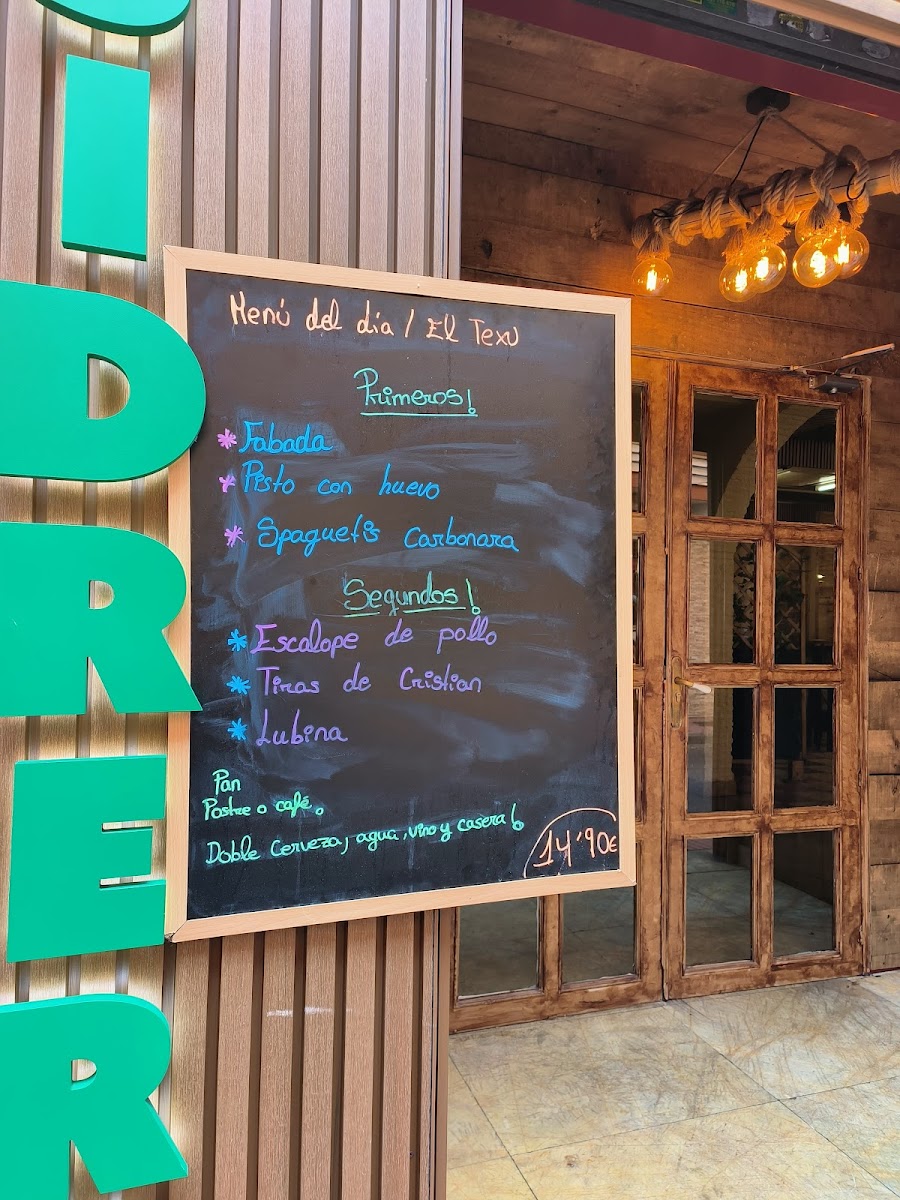 SIDRER
Menú del día / El Texu
Primeros!
* Fabada
* Pisto con huevo
* Spaguetis Carbonara
Segundos!
* Escalope de pollo
* Tiras de Cristian
* Lubina
Pan
Postre o café.
Doble Cerveza, agua, vino y casera!
14'90€